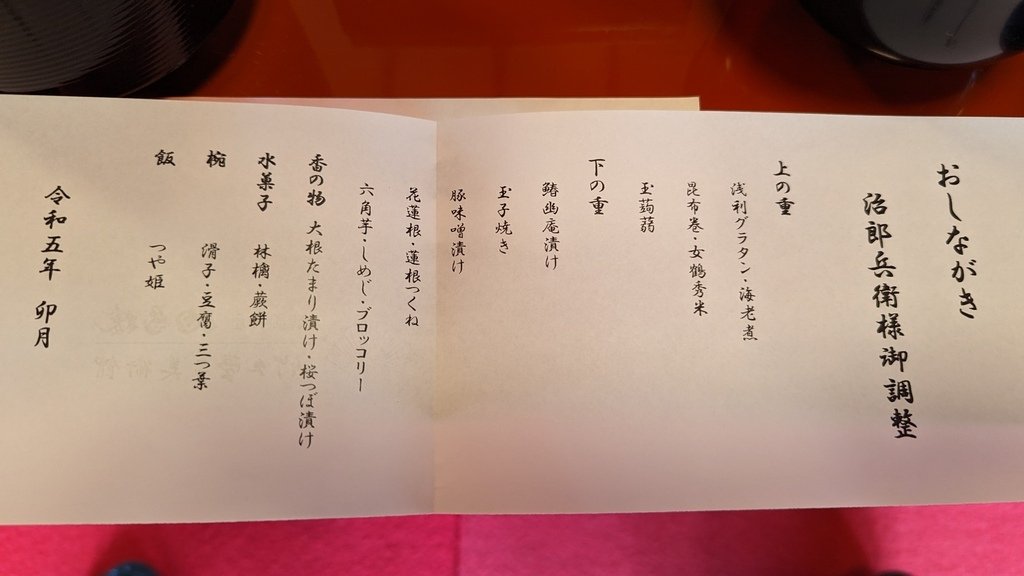 おしながき
治郎兵衛様御調整
上の重
浅利グラタン・海老煮
昆布巻・女鶴秀米
玉蒟蒻
下の重
鰆幽庵漬け
玉子焼き
豚味噌漬け
花蓮根・蓮根つくね
六角芋・しめじ・ブロッコリー
香の物 大根たまり漬け・桜つぼ漬け
水菓子 林檎・蕨餅
椀 滑子・豆腐・三つ葉
飯 つや姫
令和五年 卯月